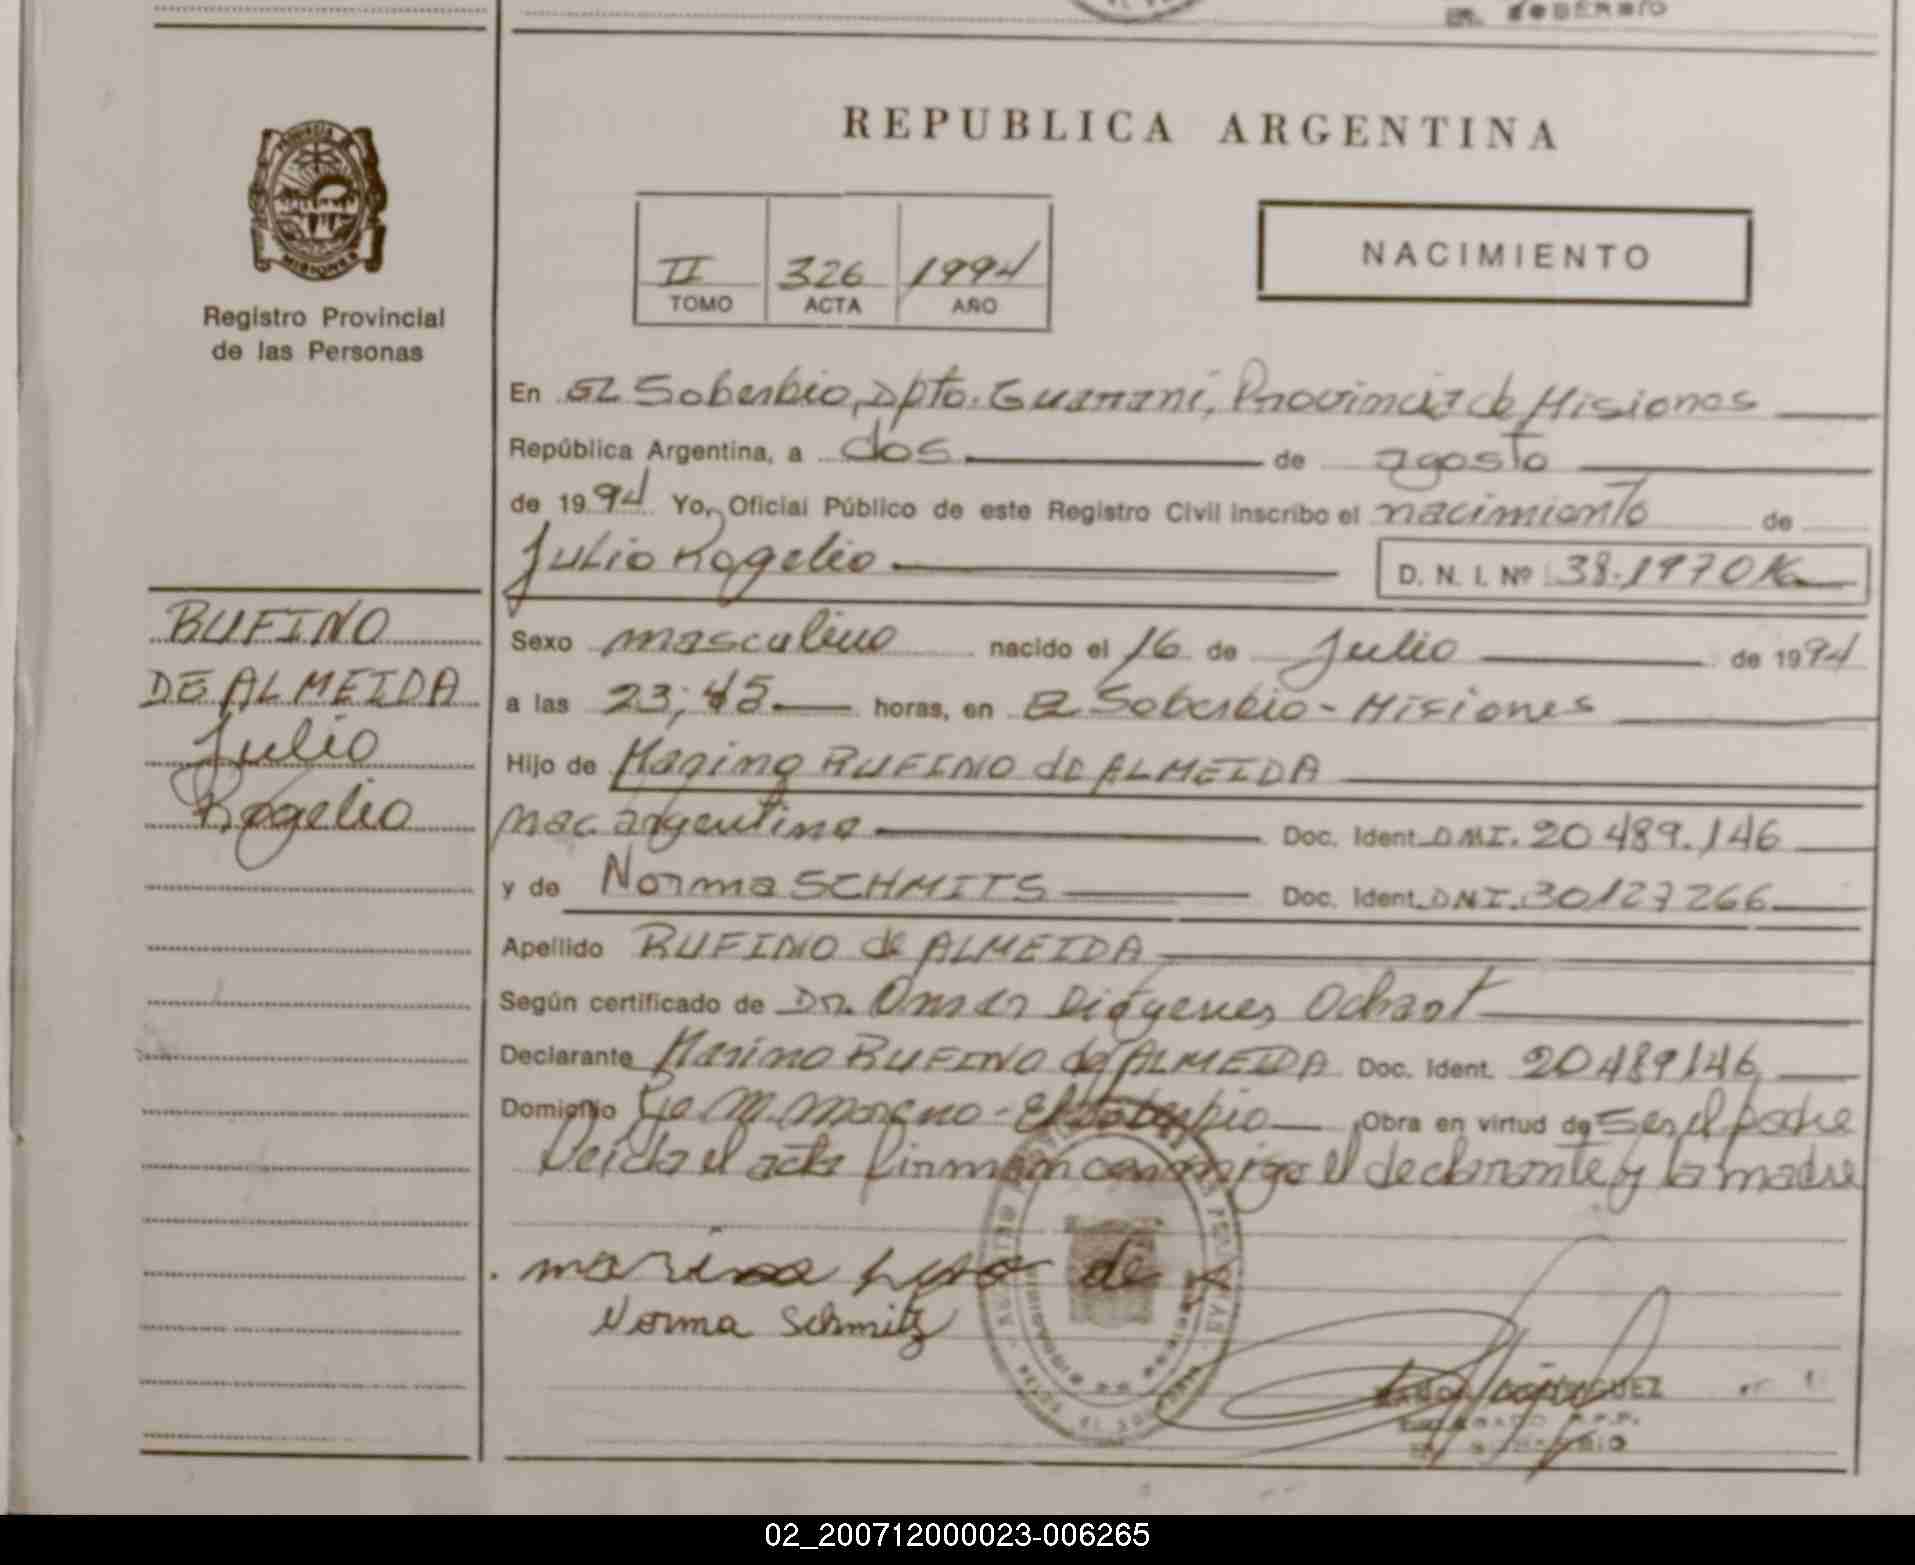 EL SOBERBIO
REPUBLICA ARGENTINA
PROVINCIA DE
MISIONES
Registro Provincial
de las Personas
II 326 1994
TOMO ACTA AÑO
NACIMIENTO
En El Soberbio, Dpto. Guarani, Provincia de Misiones
República Argentina, a dos de agosto
de 1994 Yo, Oficial Público de este Registro Civil inscribo el nacimiento de
Julio Rogelio D. N. I. Nº 38.1970
RUFINO
DE ALMEIDA
Julio
Rogelio
Sexo masculino nacido el 16 de Julio de 1994
a las 23;45 horas, en El Soberbio - Misiones
Hijo de Marino RUFINO de ALMEIDA
nac. argentina Doc. Ident. DNI. 20 489.146
y de Norma SCHMITS Doc. Ident. DNI. 30127266
Apellido RUFINO de ALMEIDA
Según certificado de Dr. Omar Diógenes Ochaot
Declarante Marino RUFINO de ALMEIDA Doc. Ident. 20489146
Domicilio M. Moreno - El Soberbio Obra en virtud de ser el padre
Leida el acta firman conmigo el declarante y la madre
marino de
Norma Schmitz
02_200712000023-006265